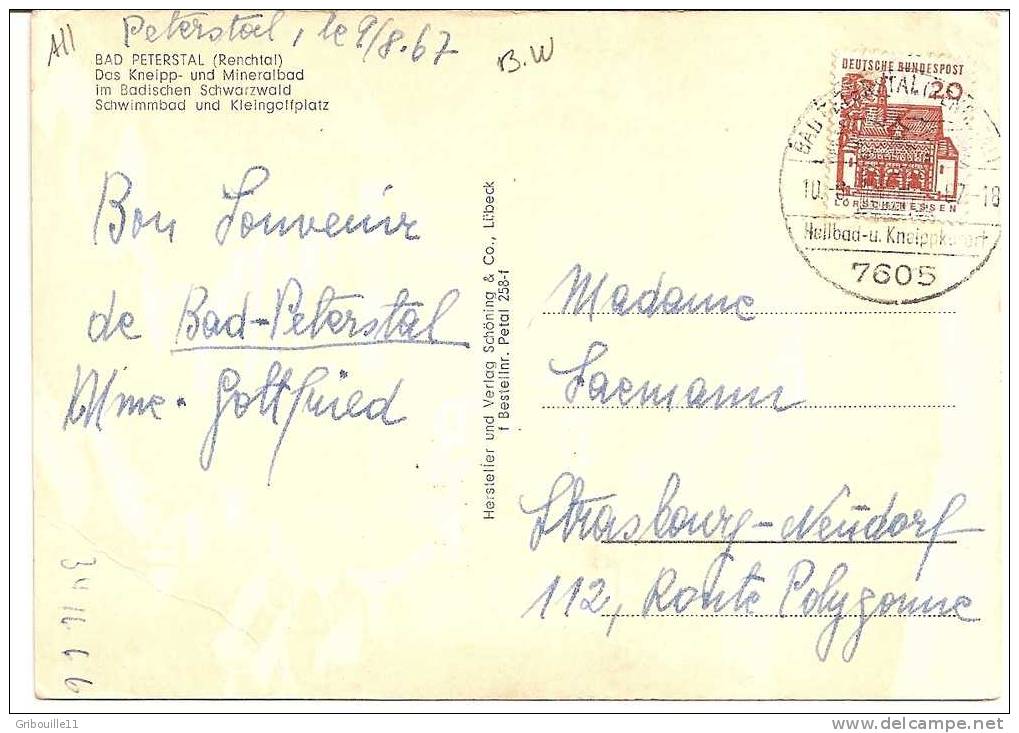 All
Peterstal, le 9/8.67
B.W
BAD PETERSTAL (Renchtal)
Das Kneipp- und Mineralbad
im Badischen Schwarzwald
Schwimmbad und Kleingolfplatz
Bon Souvenir
de Bad-Peterstal
Mme. Gottfried
Hersteller und Verlag Schöning & Co., Lübeck
f Bestellnr. Petal 258-f
DEUTSCHE BUNDESPOST
20
LORSCH/HESSEN
Heilbad-u. Kneippkurort
7605
Madame
Saemann
Strasbourg-Neudorf
112, Route Polygonne
Gribouille11
www.delcampe.net